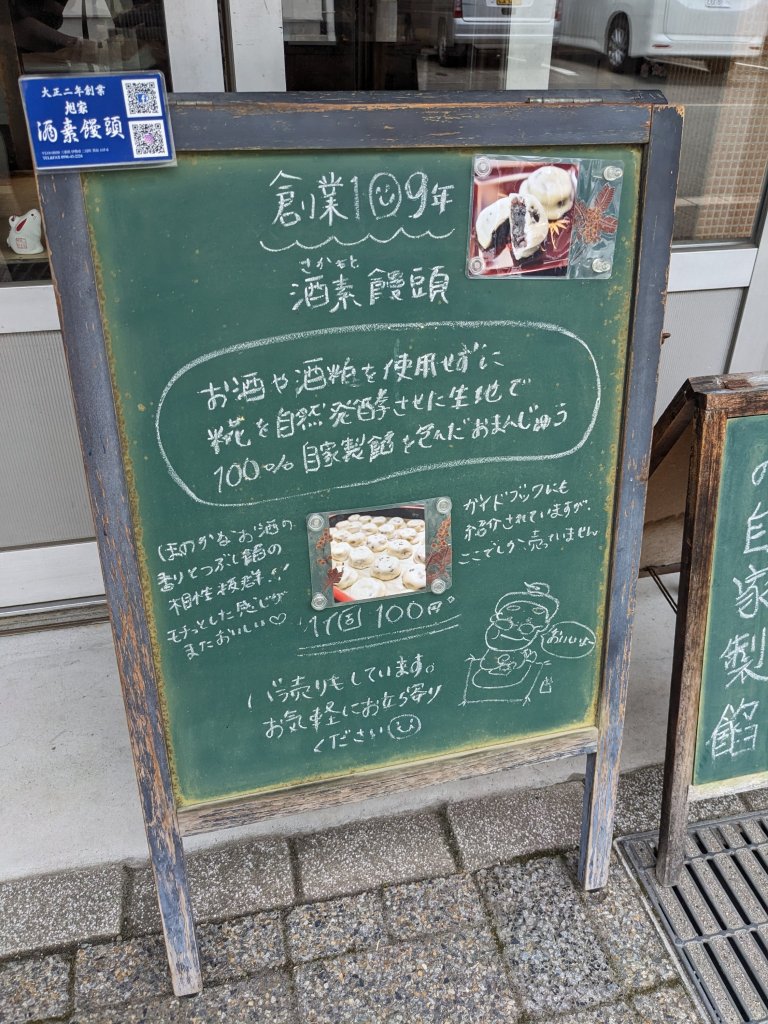 大正二年創業
旭家
酒素饅頭
創業109年
さかもと
酒素饅頭
お酒や酒粕を使用せずに
糀を自然発酵させた生地で
100% 自家製餡を包んだおまんじゅう
ほのかなお酒の
香りとつぶし餡の
相性抜群!!
モチっとした感じが
またおいしい♡
ガイドブックにも
紹介されていますが、
ここでしか売っていません
1ケ(個) 100円。
おいしいよ~
バラ売りもしています。
お気軽にお立ち寄り
ください
の自家製餡